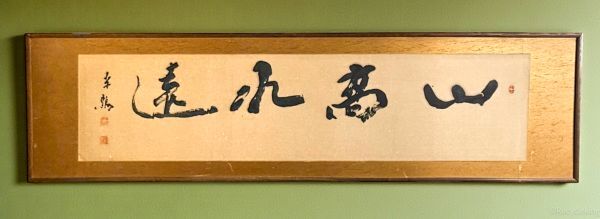 山高水遠